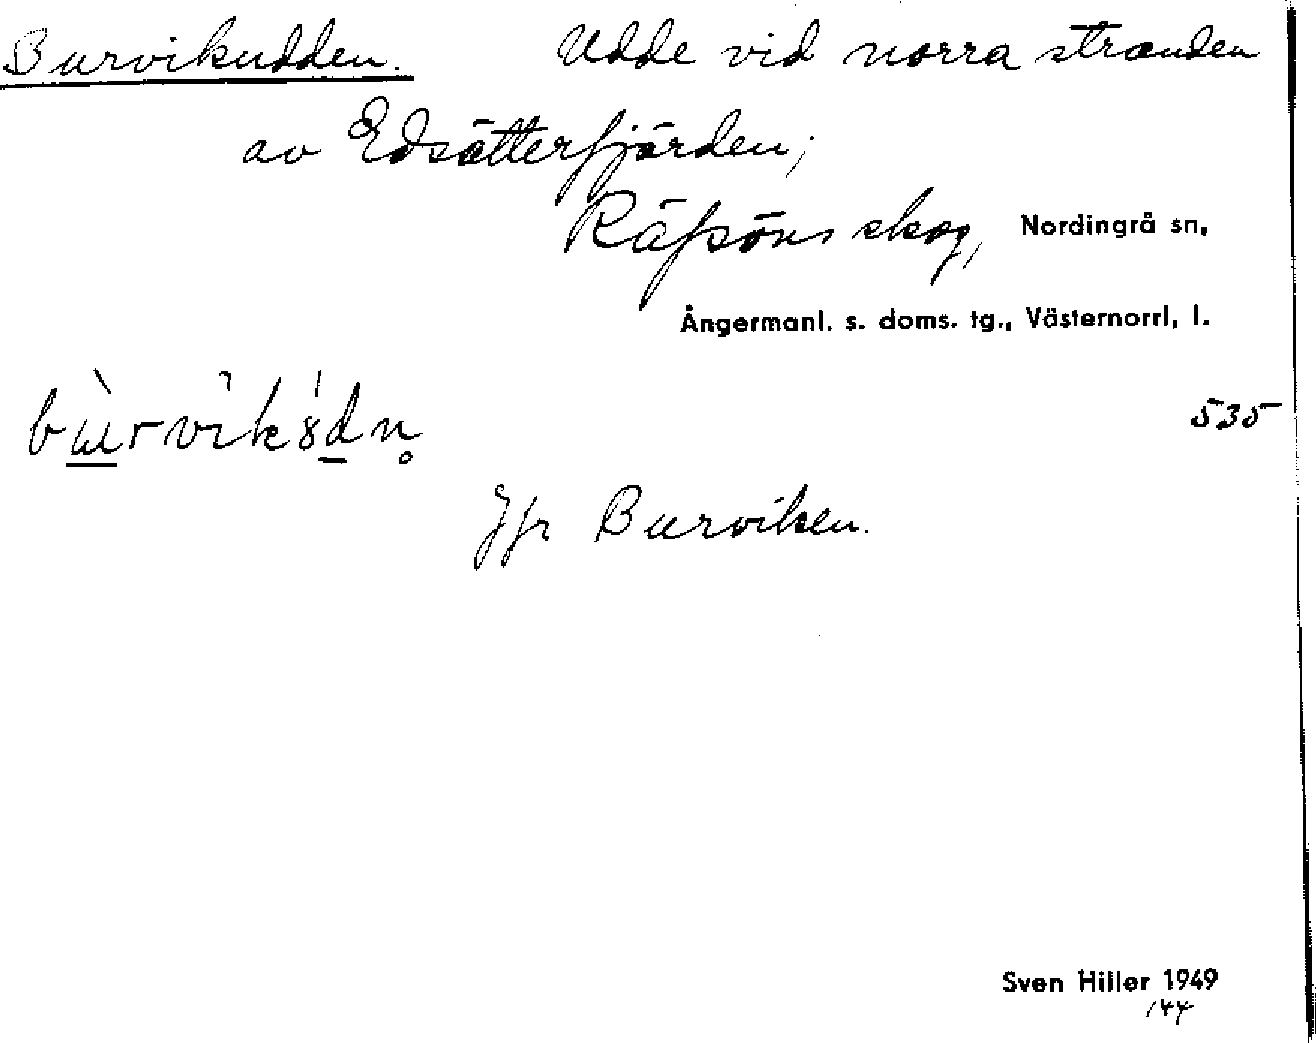 Burvikudden. Udde vid norra stranden
av Edsätterfjärden;
Räfsöns skog, Nordingrå sn,
Ångermanl. s. doms. tg., Västernorrl. l.
535
Jfr Burviken.
Sven Hiller 1949
144